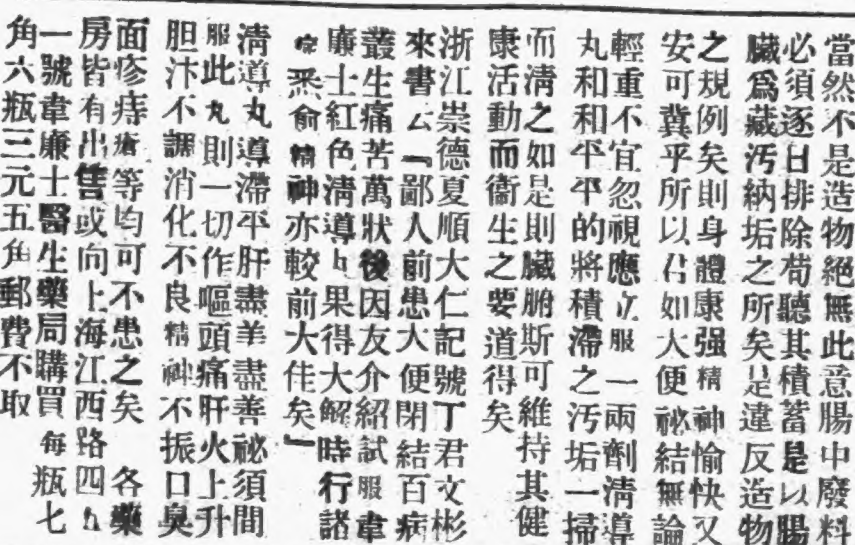 當然不是造物絕無此意腸中廢料
必須逐日排除苟聽其積蓄是以腸
臟爲藏汚納垢之所矣是違反造物
之規例矣則身體康强精神愉快又
安可冀乎所以君如大便祕結無論
輕重不宜忽視應立服一兩劑清導
丸和和平平的將積滯之汚垢一掃
而清之如是則臟腑斯可維持其健
康活動而衞生之要道得矣
浙江崇德夏順大仁記號丁君文彬
來書云『鄙人前患大便閉結百病
叢生痛苦萬狀後因友介紹試服韋
廉士紅色清導丸果得大解時行諸
症悉俞精神亦較前大佳矣』
清導丸導滯平肝盡美盡善祕須間
服此丸則一切作嘔頭痛肝火上升
胆汁不調消化不良精神不振口臭
面疹痔瘡等均可不患之矣 各藥
房皆有出售或向上海江西路四九
一號韋廉士醫生藥局購買每瓶七
角六瓶三元五角郵費不取